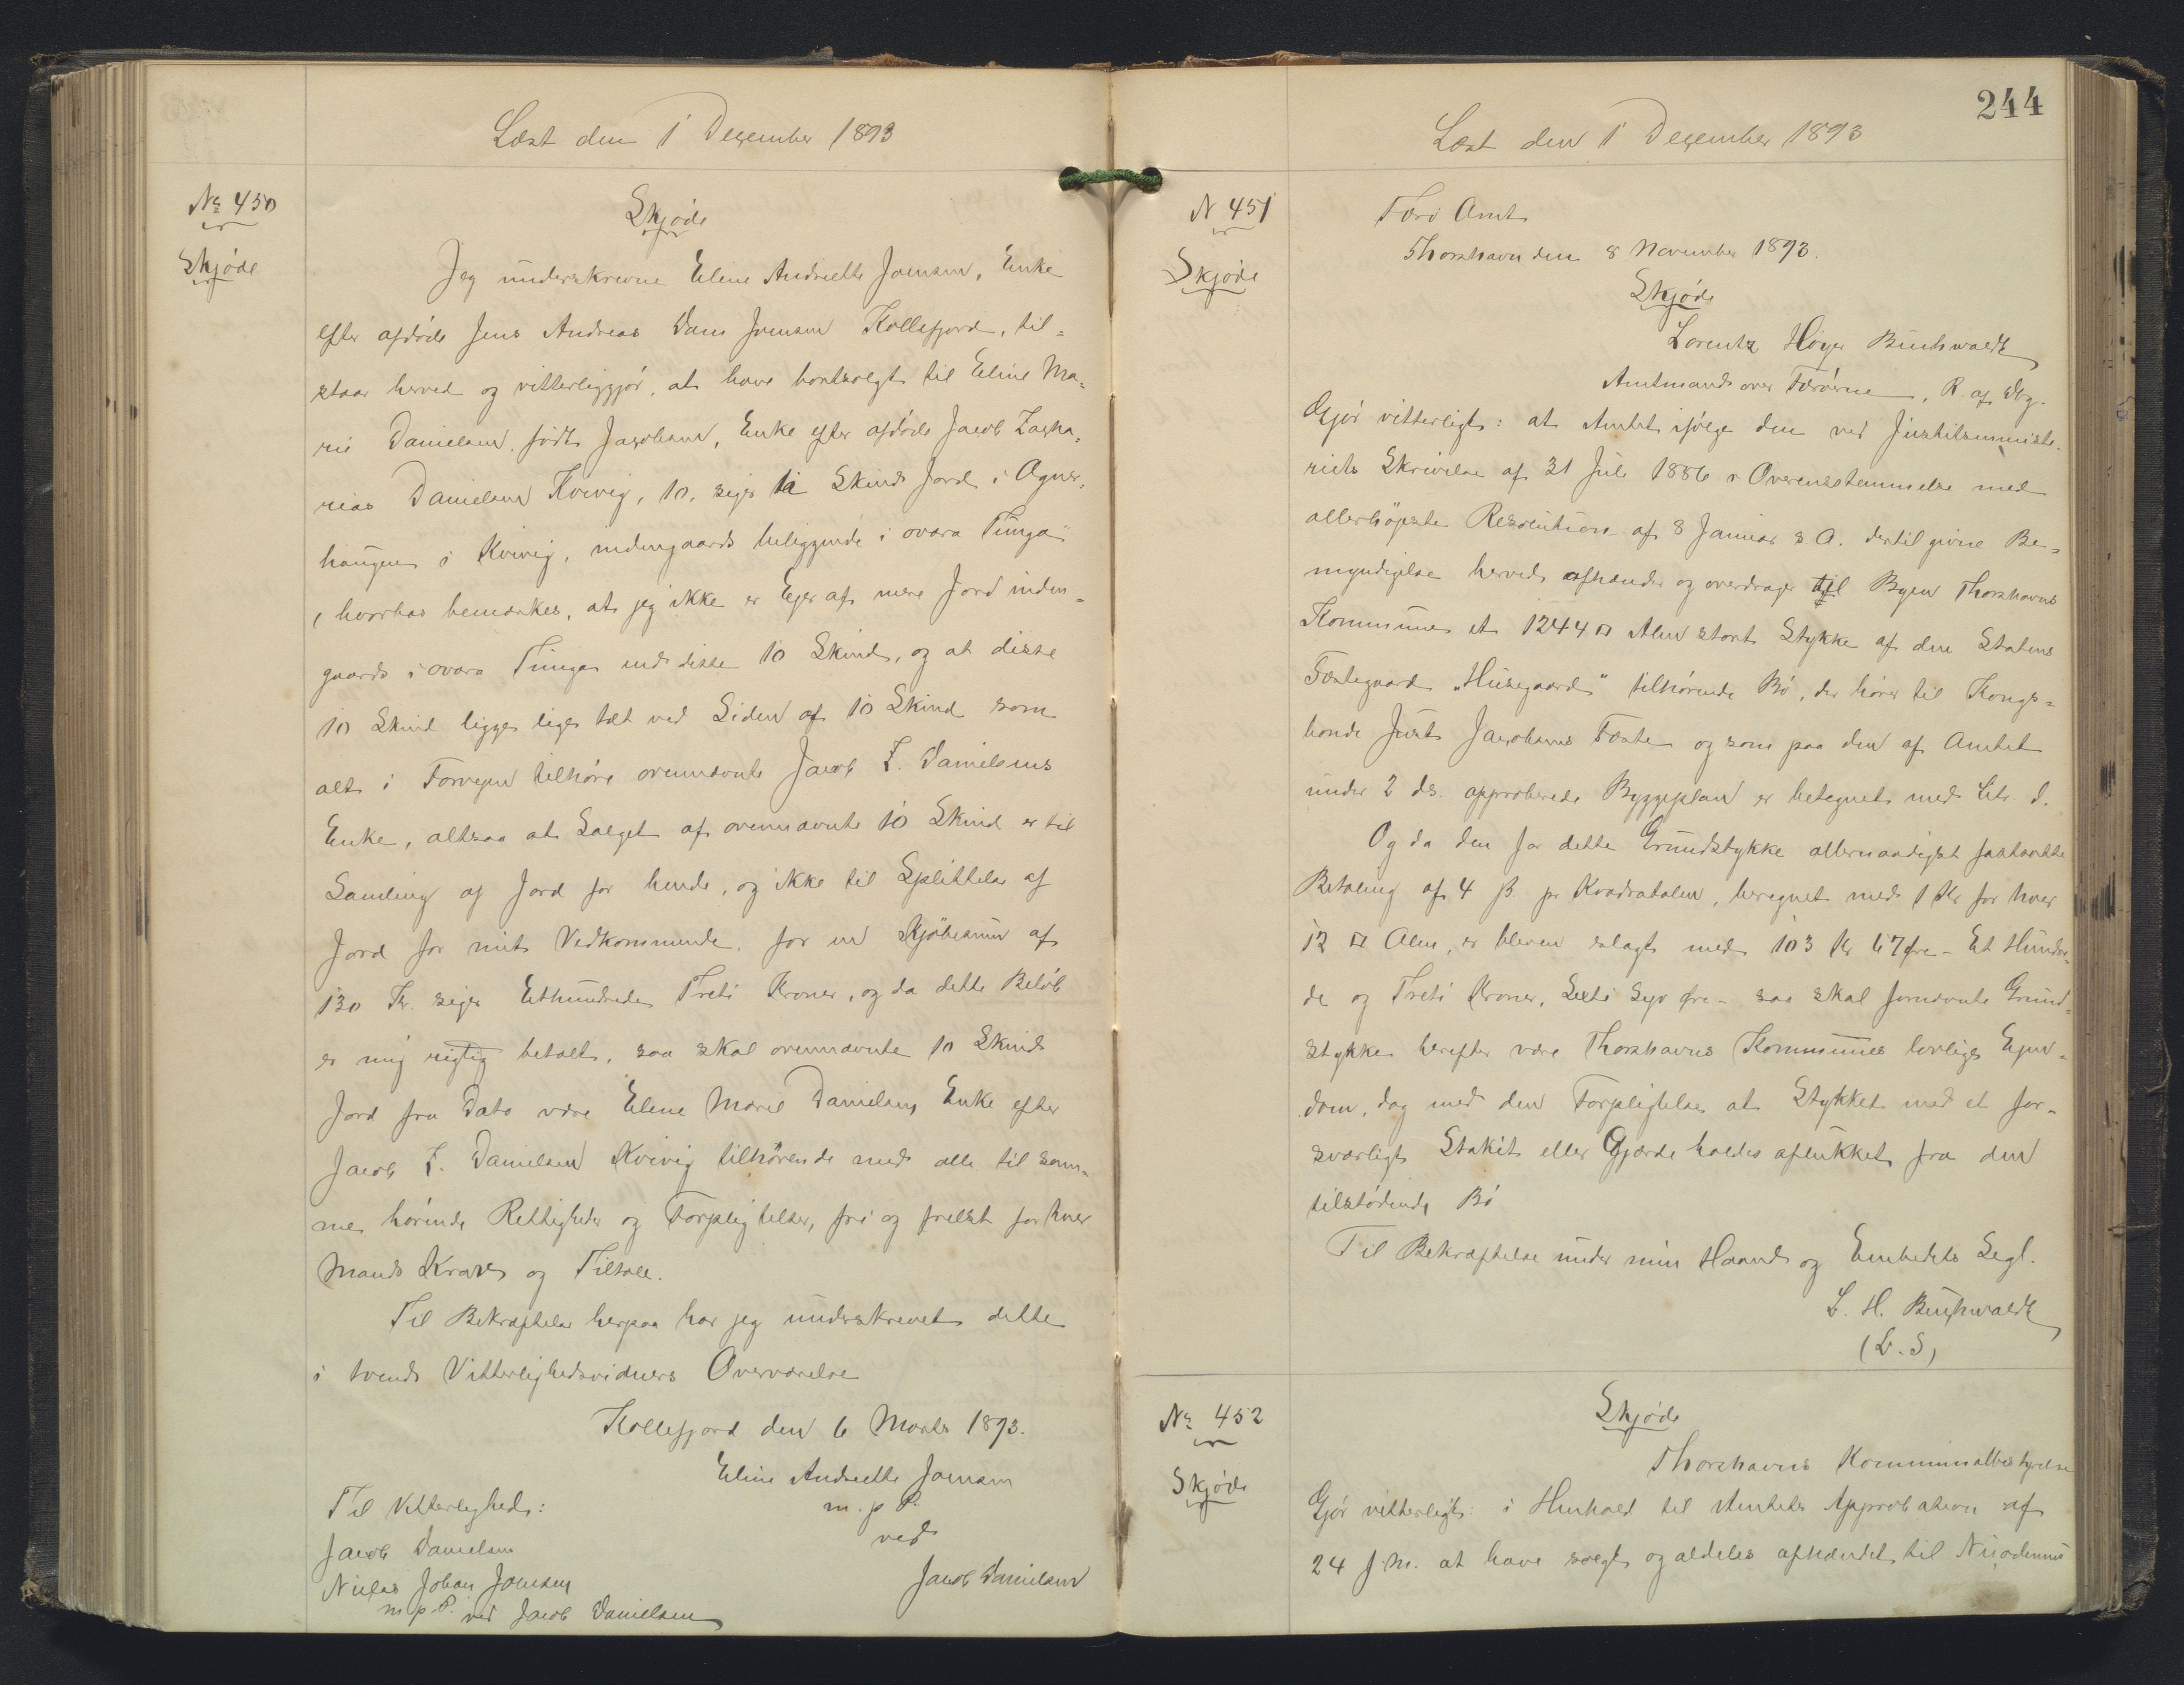 Læst den 1 Dezember 1893
№ 450
Skjøde
Skjøde
Jeg underskrevne Elene Andrea Joensen, Enke
efter afdøde Jens Andreas Dam Joensen Kollefjord, til-
staar herved og vitterliggjør, at have bortsolgt til Eline Ma-
rie Danielsen, født Jacobsen, Enke efter afdøde Jacob Zacha-
rias Danielsen Kvivig, 10, siger ti Skind Jord i
haugen i Kvivig, indengaards beliggende i ovara Tunga
(hvorhos bemærkes, at jeg ikke er Ejer af mere Jord inden-
gaards i ovara Tunga end disse 10 Skind, og at disse
10 Skind ligger lige tæt ved Siden af 10 Skind som
alt i Forvejen tilhøre ovennævnte Jacob Z. Danielsens
Enke, altsaa at Salget af ovennævnte 10 Skind er til
Samling af Jord for hende, og ikke til Splittelse af
Jord for mit Vedkommende, for en Kjøbesum af
130 Kr. siger Ethundrede Treti Kroner, og da dette Beløb
er mig rigtig betalt, saa skal ovennævnte 10 Skind
Jord fra Dato være Elene Marie Danielsen Enke efter
Jacob Z. Danielsen Kvivig tilhørende med alle til sam-
me hørende Rettigheder og Forpligtelser, fri og frelst for hver
Mands Krav og Tiltale.
Til Bekræftelse herpaa har jeg underskrevet dette
i tvende Vitterlighedsvidners Overværelse
Kollefjord den 6 Marts 1893.
Eline Andrea Joensen
m. p. P.
ved
Jacob Danielsen
Til Vitterlighed:
Jacob Danielsen
Niclas Johan Joensen
m. p. P. ved Jacob Danielsen
244
Læst den 1 Dezember 1893
N 451
Skjøde
Færø Amt
Thorshavn den 8 November 1893.
Skjøde
Lorentz Høyer Buchwaldt
Amtmand over Færøerne, R. af Dbg.
Gjør vitterligt: at Amtet ifølge den ved Justitsministe-
riets Skrivelse af 31 Juli 1886 i Overensstemmelse med
allerhöjeste Resolution af 8 Januar s A. dertil givne Be-
myndigelse herved afhænder og overdrager til Byen Thorshavns
Kommune et 1244 □ Alen stort Stykke af den Statens
Fæstegaard „Husegaard" tilhørende Bø, der hører til Kongs-
bonde Just Jacobsens Fæste og som paa den af Amtet
under 2 ds. approberede Byggeplan er betegnet med Litr. d.
Og da den for dette Grundstykke allernaadigst fastsatte
Betaling af 4 β pr Kvadratalen, beregnet med 1 Kr for hver
12 □ Alen, er bleven erlagt med 103 Kr 67 Øre - Et Hundre-
de og Treti Kroner, Sexti Syv Øre - saa skal fornævnte Grund-
stykke herefter være Thorshavns Kommunes lovlige Ejen-
dom, dog med den Forpligtelse at Stykket med et for-
svarligt Stakit eller Gjærde holdes aflukket fra den
tilstødende Bø
Til Bekræftelse under min Haand og Embedets Segl.
L. H. Buchwaldt
(L. S)
№ 452
Skjøde
Skjøde
Thorshavns Kommunalbestyrelse
Gjør vitterligt: i Henhold til Amtets Approbation af
24 f. M. at have solgt og aldeles afhændet til Nicodemus